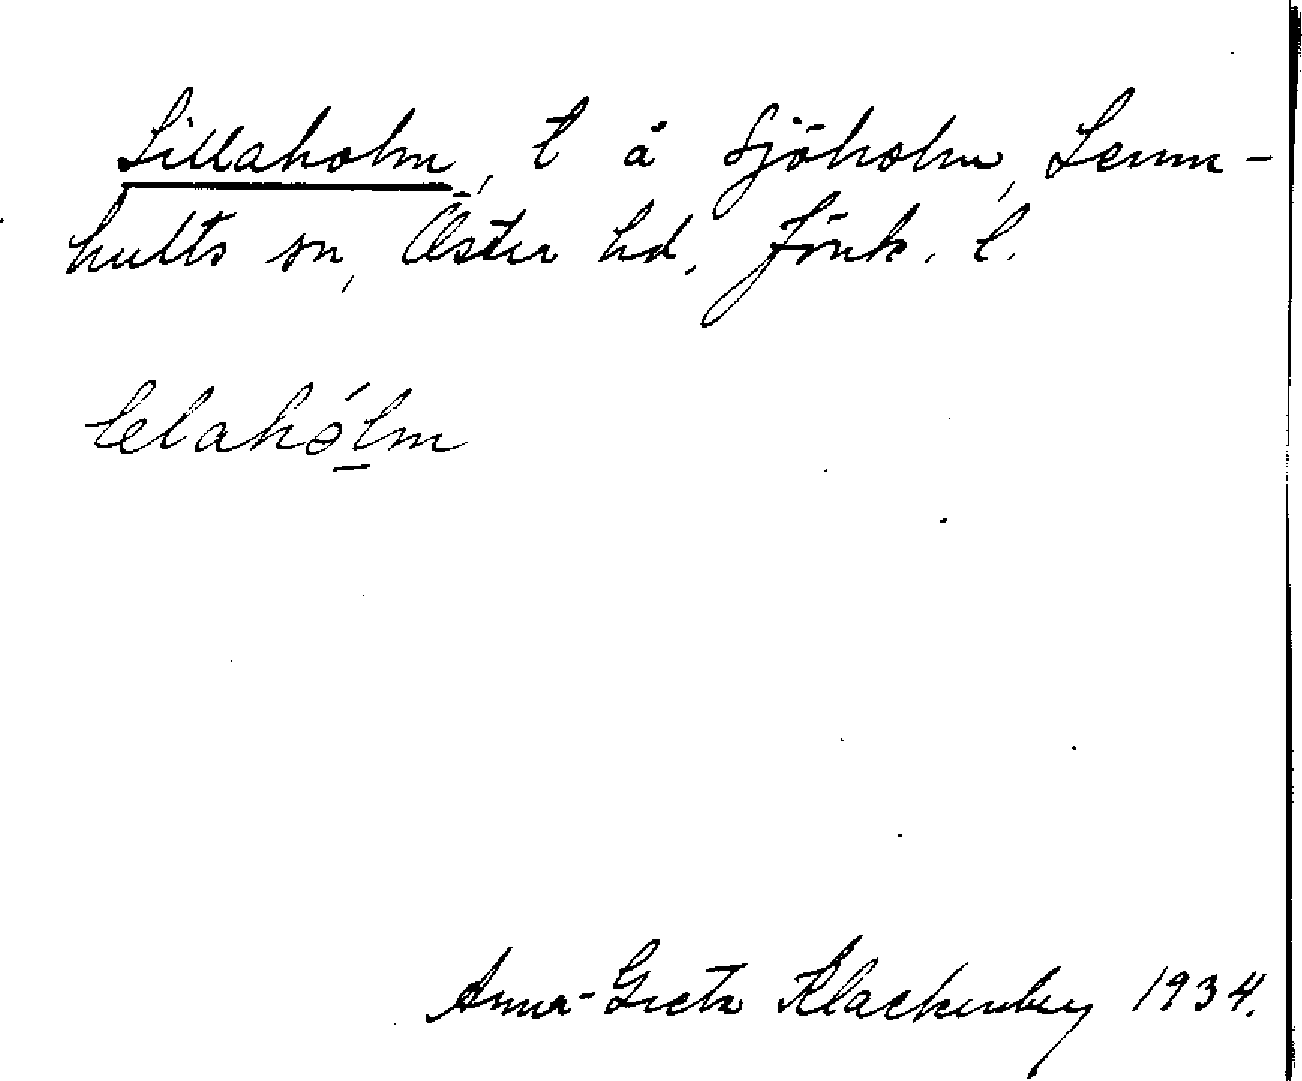 Lillaholm, t å Sjöholm, Lemn-
hults sn, Öster hd, Jönk. l.
lelahólm
Anna-Greta Klackenberg 1934.